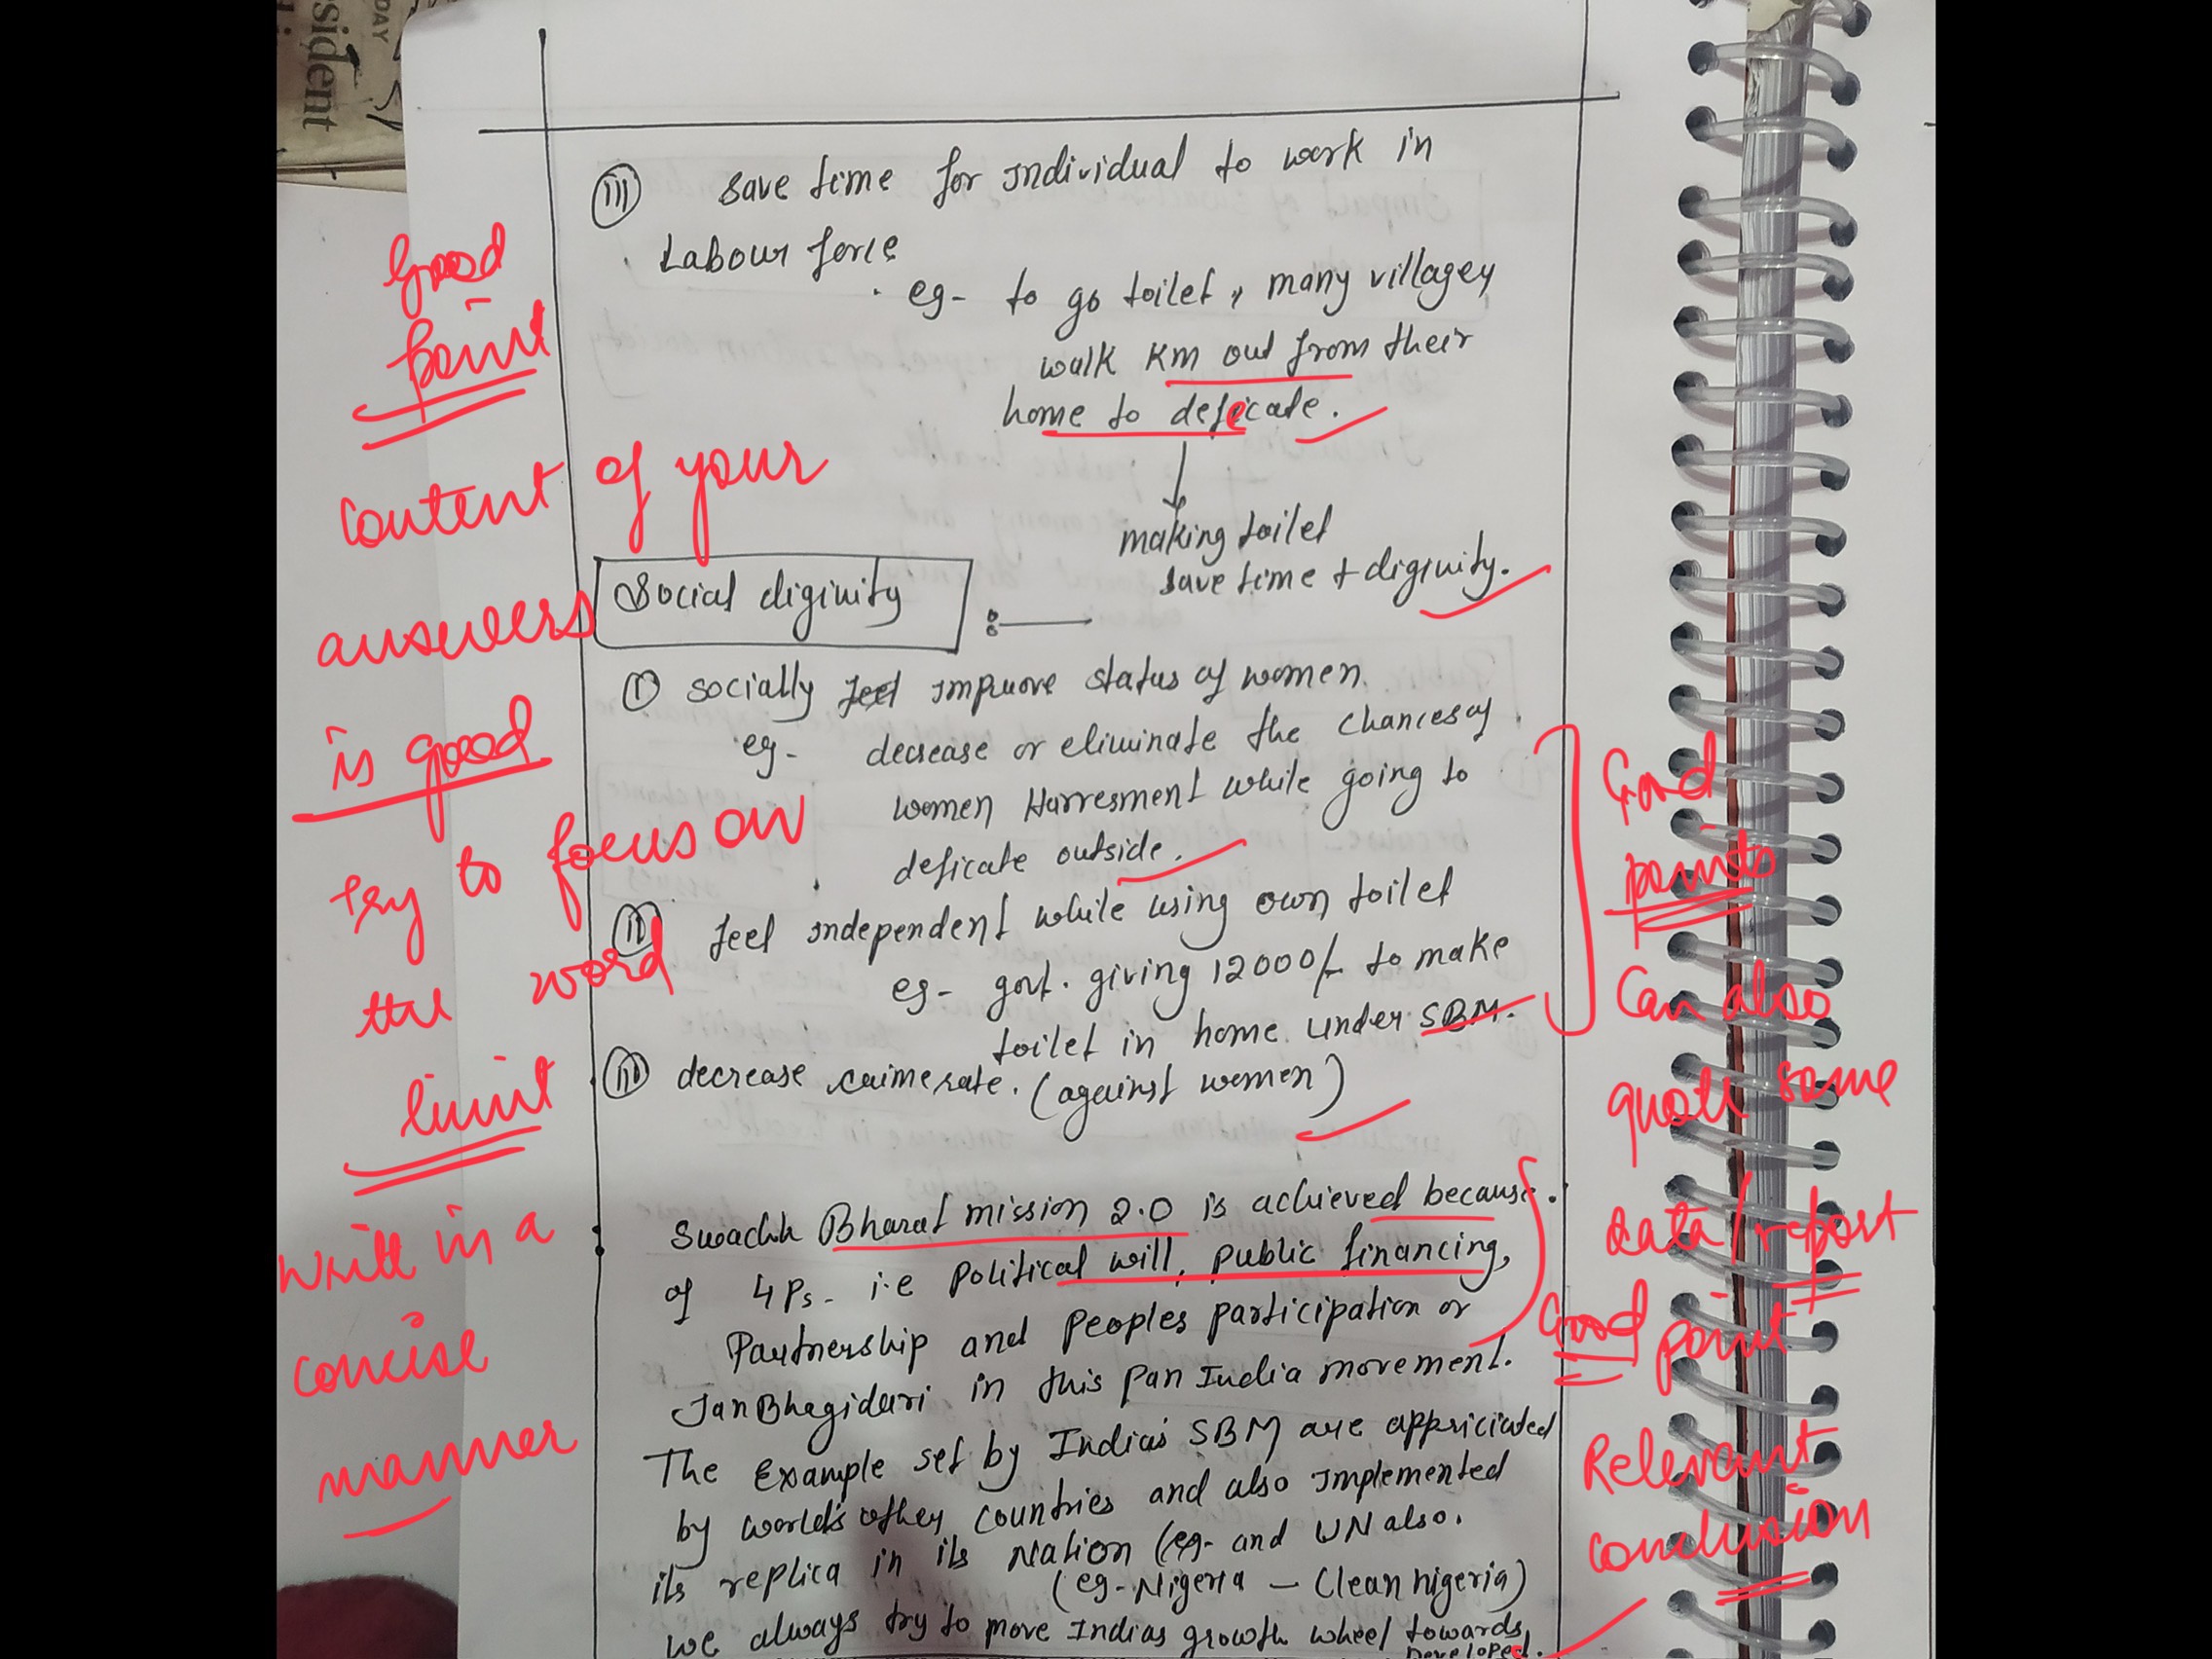 sident
DAY
(iii) save time for individual to work in
Labour force
eg- to go toilet, many villagey
walk Km out from their
home to defecate.
making toilet
save time + diginity.
Social diginity
(i) socially feel improve status of women.
eg- decrease or eliminate the chances of
women Harresment while going to
deficate outside.
(ii) feel independent while using own toilet
eg- govt. giving 12000/- to make
toilet in home under SBM.
(iii) decrease crime rate. (against women)
Swachh Bharat mission 2.0 is achieved because
of 4Ps- i.e Political will, public financing,
Partnership and Peoples participation or
JanBhagidari in this pan India movement.
The Example set by India's SBM are appriciated
by world's other countries and also implemented
its replica in its Nation (eg- and UN also.
(eg- Nigeria – Clean nigeria)
we always try to move Indias growth wheel towards
Developed.
Good
point
content of your
answers
is good
try to focus on
the word
limit
write in a
concise
manner
Good
points
Can also
quote some
data/report
Good point
Relevant
conclusion